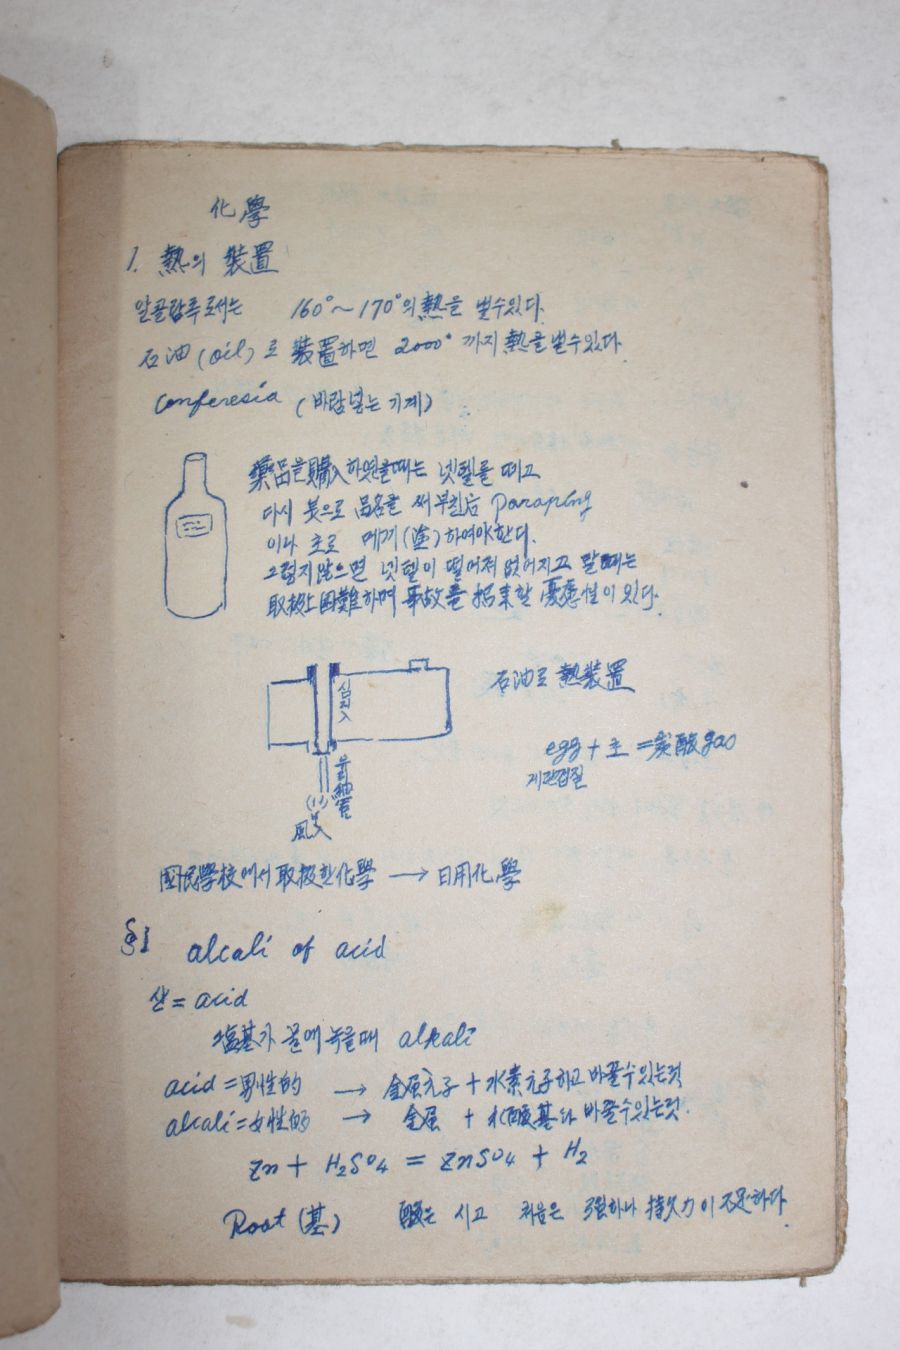 化學
1. 熱의 裝置
알콜람푸로서는 160°~170°의 熱을 낼수있다.
石油(oil)로 裝置하면 2000° 까지 熱을 낼수있다
Conferesia (바람넣는 기계)
藥品을 購入하였을때는 넷텔을 떼고
다시 붓으로 品名을 써 부친后 Paraping
이나 초로 메끼(塗)하여야한다.
그렇지않으면 넷텔이 떨어져 없어지고 말때는
取扱上困難하며 事故를 招来할 憂慮性이 있다.
石油로 熱裝置
심지入
egg + 초 = 炭酸gas
계란껍질
風入
國民學校에서 取扱한化學 → 日用化學
§1 alcali of acid
산 = acid
塩基가 물에 녹을때 alkali
acid = 男性的 → 金属元子 + 水素元子하고 바꿀수있는것
alcali = 女性的 → 金属 + 水酸基와 바꿀수있는것.
Zn + H2SO4 = ZnSO4 + H2
Root (基) 酸은 시고 처음은 强하나 持久力이 不足하다.